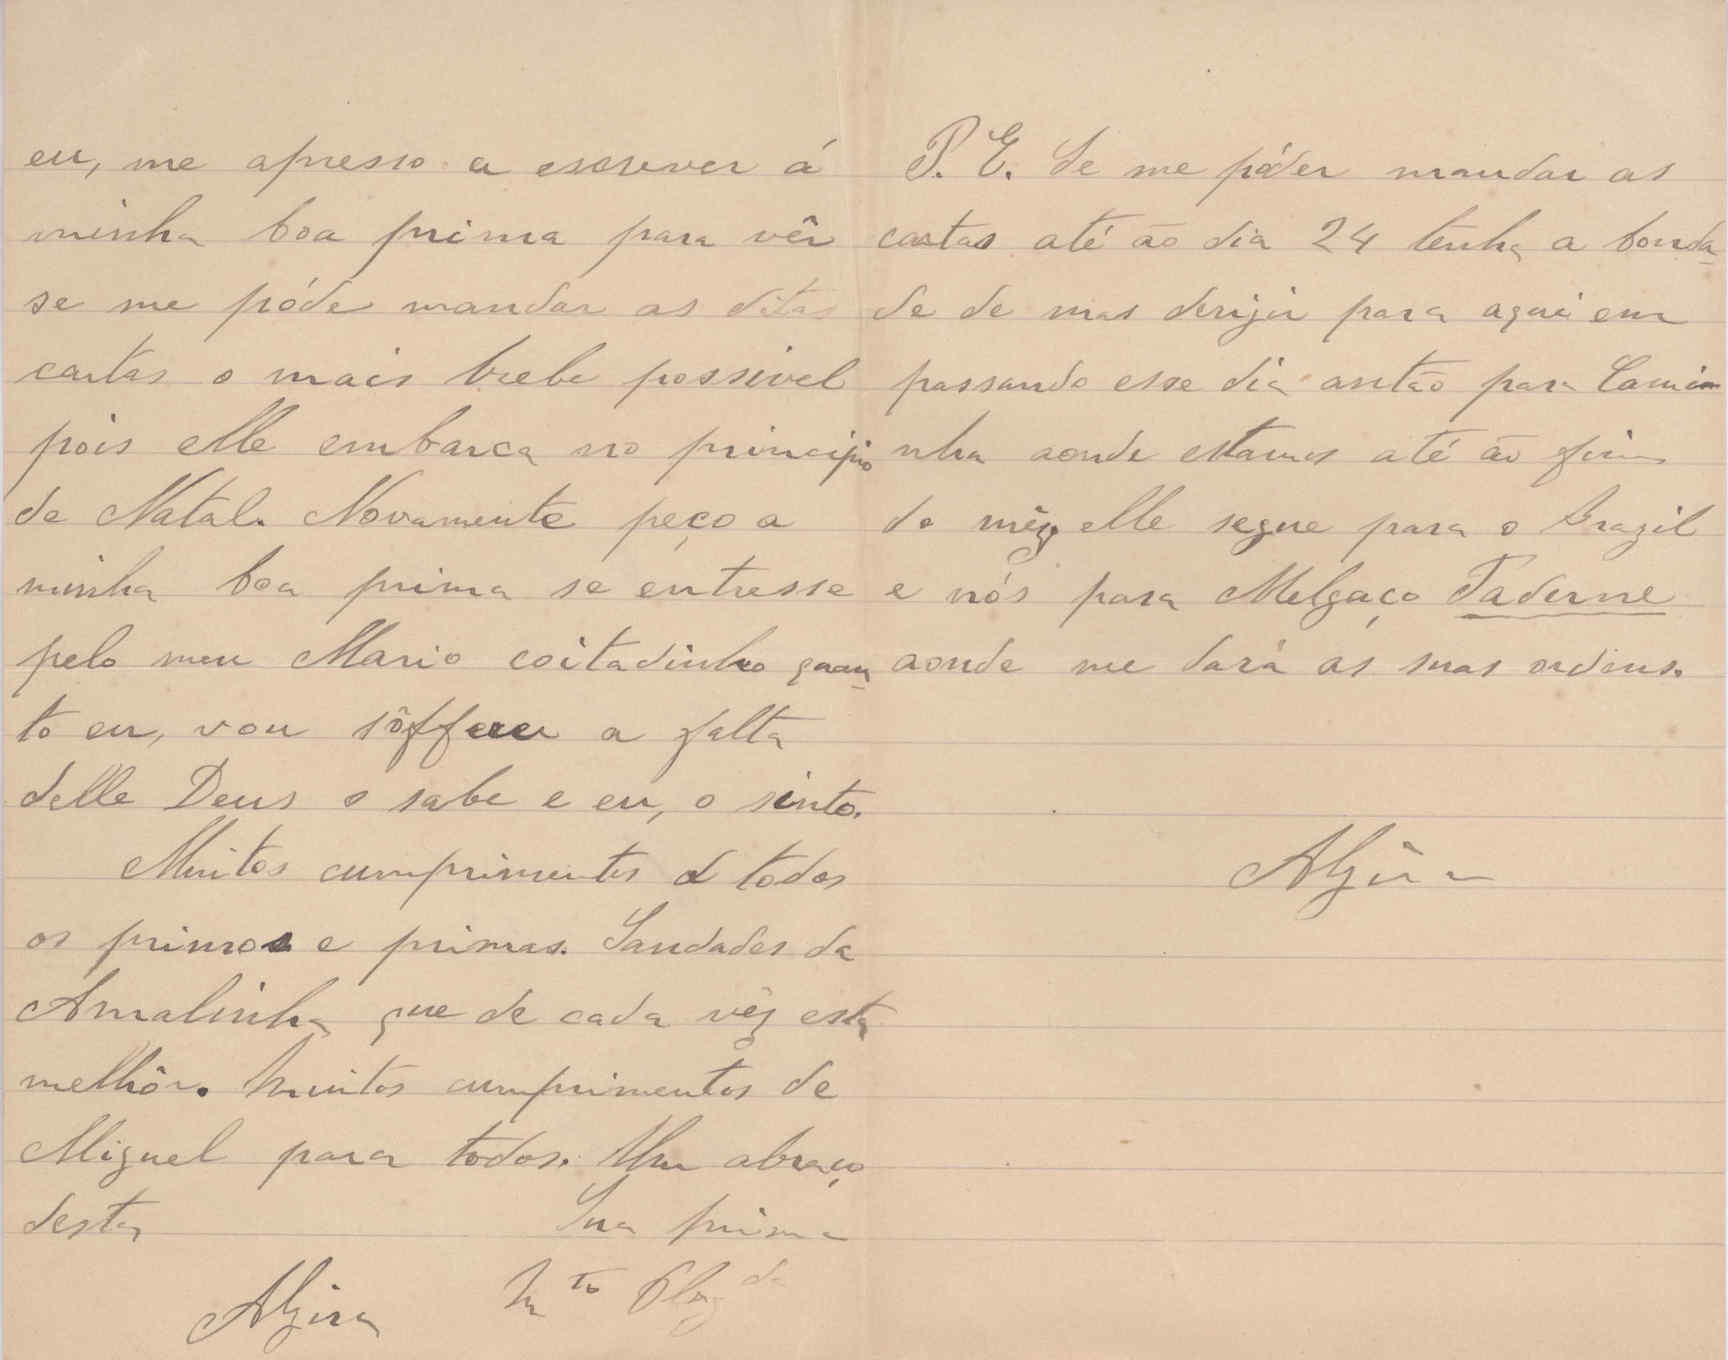 eu, me apresso a escrever á
minha boa prima para vêr
se me póde mandar as ditas
cartas o mais brebe possivel
pois elle embarca no principio
de Natal. Novamente peço a
minha boa prima se entresse
pelo meu Mario coitadinho quan-
to eu, vou sôffrer a falta
delle Deus o sabe e eu, o sinto.
Muitos cumprimentos a todos
os primos e primas. Saudades da
Amalinha que de cada vêz está
melhôr. Muitos cumprimentos de
Miguel para todos. Um abraço
desta Sua prima
Alzira Mto Obrgda
P. E. Se me póder mandar as
cartas até ao dia 24 tenha a bonda-
de de mas derigir para aqui em
passando esse dia antão para Camin
nha aonde estamos até ao fim
do mêz, elle segue para o Brazil
e nós para Melgaço Paderne
aonde me dará as suas ordens.
Alzira